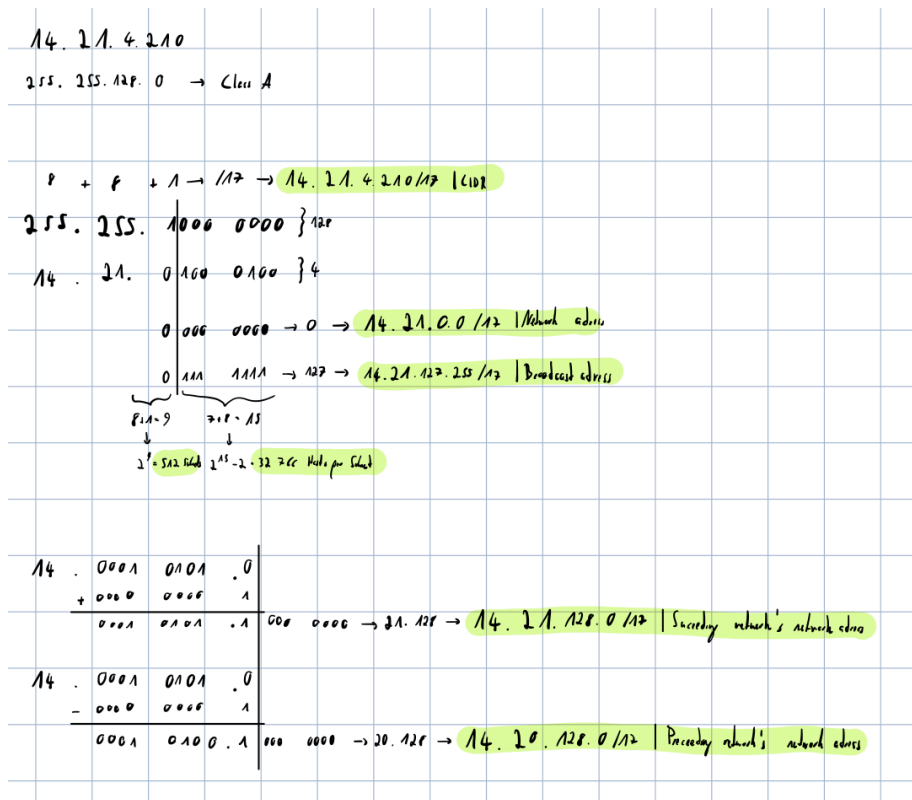 14. 21. 4. 210
255. 255. 128. 0 → Class A
8 + 8 + 1 → /17 → 14. 21. 4. 210/17 | CIDR
255. 255. 1000 0000 } 128
14 . 21. 0100 0100 } 4
0 000 0000 → 0 → 14. 21. 0. 0 /17 | Network adress
0 111 1111 → 127 → 14. 21. 127. 255 /17 | Broadcast adress
8+1=9 7+8=15
↓ ↓
2⁹ = 512 2¹⁵-2 = 32 766 Hosts per Subnet
14 . 0001 0101 .0
+ 0000 0000 1
0001 0101 .1 000 0000 → 21. 128 → 14. 21. 128. 0 /17 | Succeeding network's network adress
14 . 0001 0101 .0
- 0000 0000 1
0001 0100 . 1 000 0000 → 20. 128 → 14. 20. 128. 0 /17 | Preceeding network's network adress